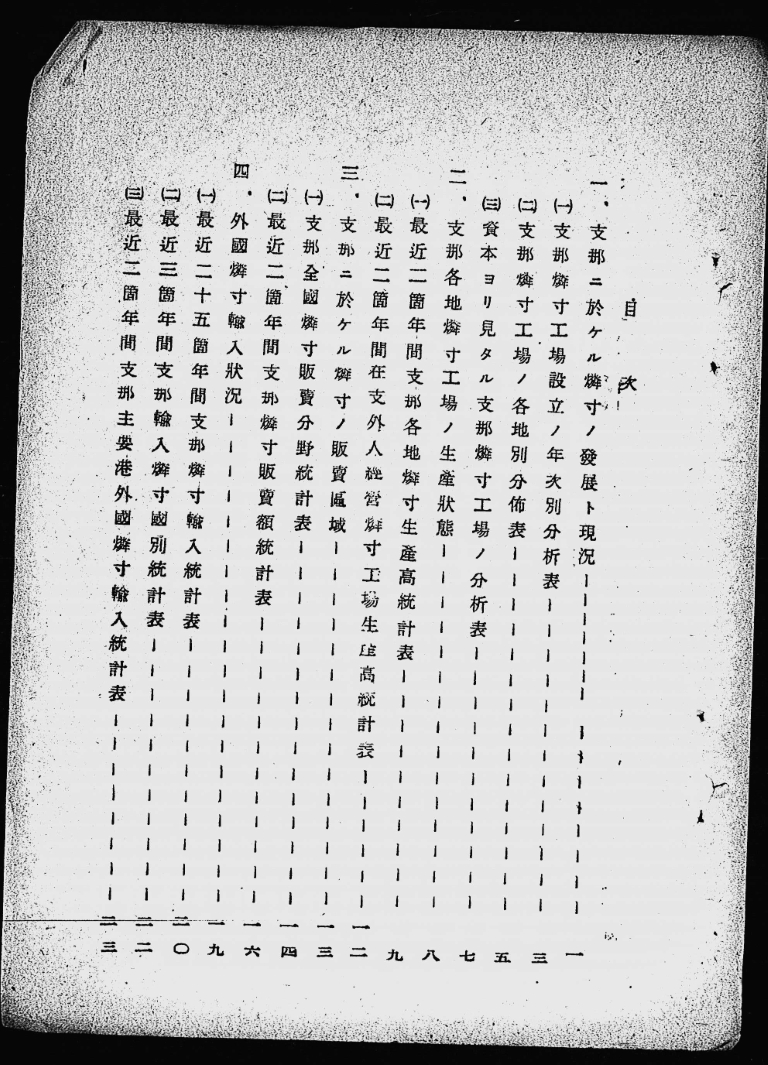 目次
一、支那ニ於ケル燐寸ノ發展ト現況 一
㈠支那燐寸工場設立ノ年次別分析表 三
㈡支那燐寸工場ノ各地別分佈表 五
㈢資本ヨリ見タル支那燐寸工場ノ分析表 七
二、支那各地燐寸工場ノ生產狀態 八
㈠最近二箇年間支那各地燐寸生產高統計表 九
㈡最近二箇年間在支外人經營燐寸工場生產高統計表 一二
三、支那ニ於ケル燐寸ノ販賣區域 一三
㈠支那全國燐寸販賣分野統計表 一四
㈡最近二箇年間支那燐寸販賣額統計表 一六
四、外國燐寸輸入狀況 一九
㈠最近二十五箇年間支那燐寸輸入統計表 二〇
㈡最近三箇年間支那輸入燐寸國別統計表 二二
㈢最近二箇年間支那主要港外國燐寸輸入統計表 二三